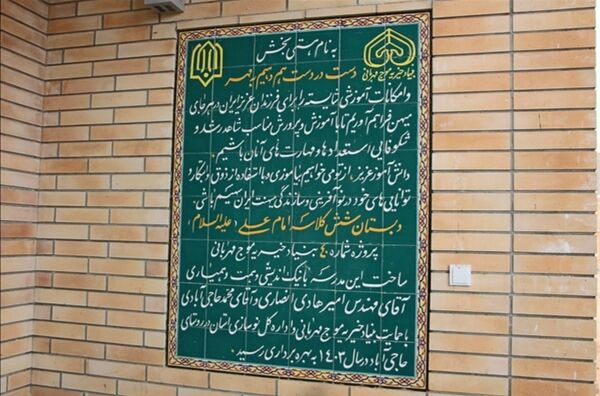 به نام هستی بخش
بنیاد خیریه موج مهربانی
دست در دست هم دهیم به مهر
و امکانات آموزشی شایسته را برای فرزندان عزیز ایران در هر جای
میهن فراهم آوریم تا با آموزش و پرورش مناسب شاهد رشد و
شکوفایی استعدادها و مهارت های آنان باشیم.
دانش آموز عزیز، از تو می خواهیم بیاموزی و با استفاده از ذوق و ابتکار و
توانایی های خود در نوآفرینی و سازندگی میهنت ایران سهیم باشی.
دبستان شش کلاسه امام علی (علیه السلام)
پروژه شماره ۴۰ بنیاد خیریه موج مهربانی
ساخت این مدرسه با نیک اندیشی و همت و همیاری
آقای مهندس امیر هادی انصاری و آقای محمد حاجی آبادی
با حمایت بنیاد خیریه موج مهربانی و اداره کل نوسازی استان در روستای
حاجی آباد در سال ۱۴۰۳ به بهره برداری رسید.